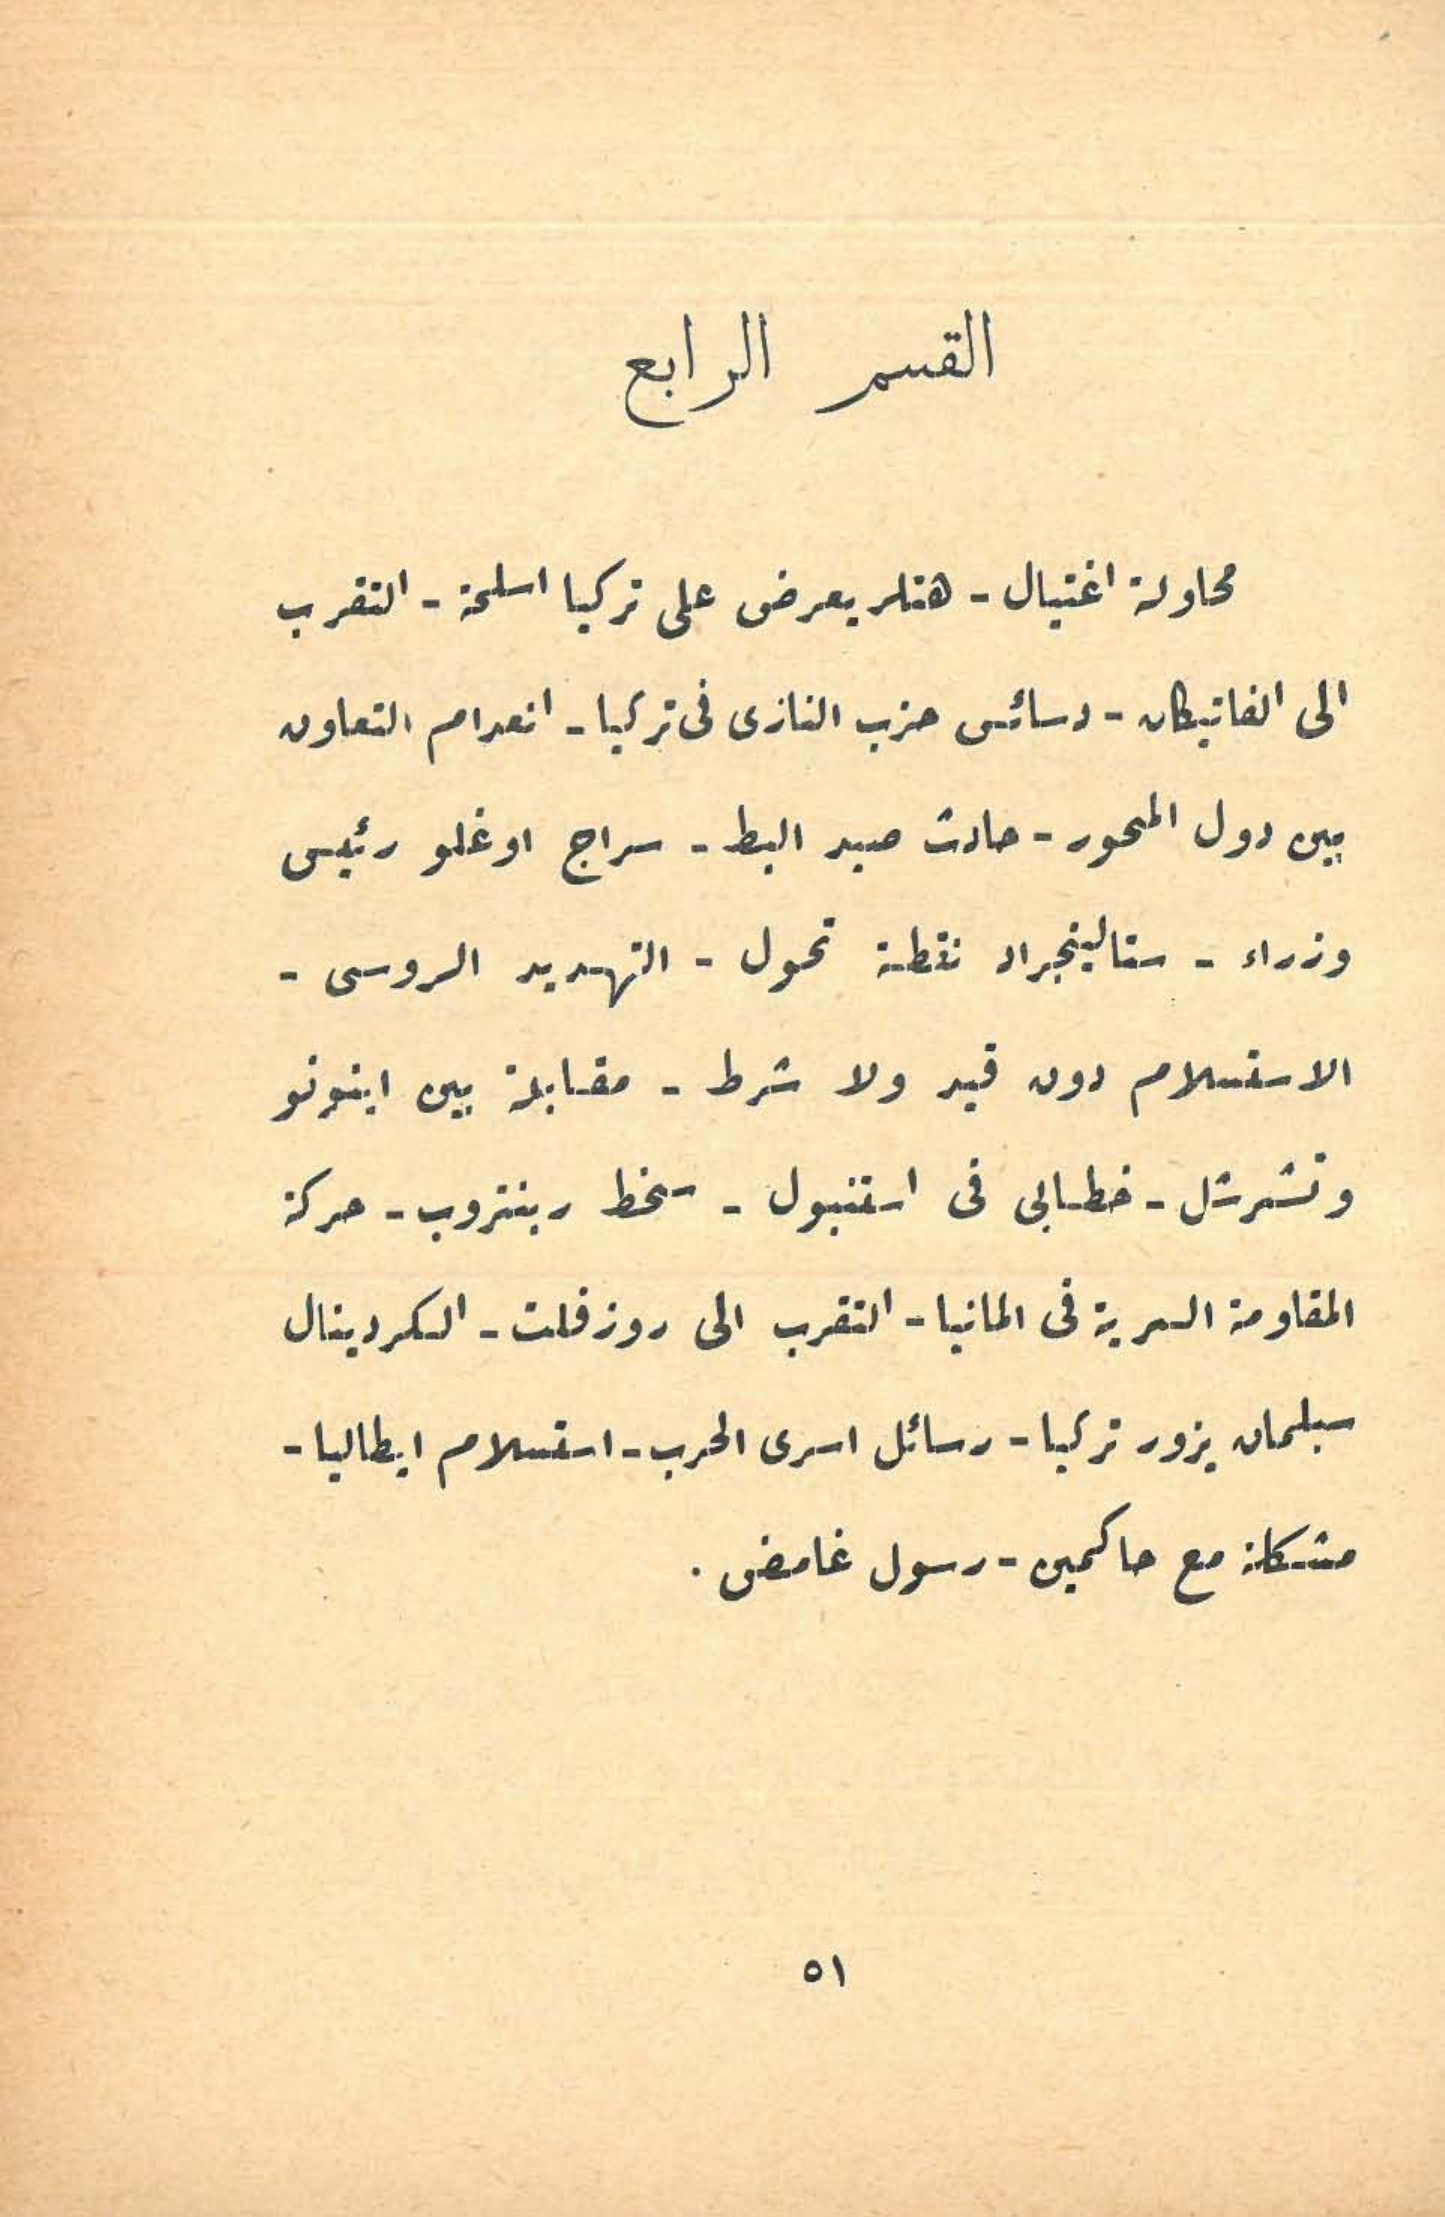 القسم الرابع
محاولة اغتيال - هتلر يعرض على تركيا اسلحة - التقرب
الى الفاتيكان - دسائس حزب النازى فى تركيا - انعدام التعاون
بين دول المحور - حادث صيد البط - سراج اوغلو رئيس
وزراء - ستالينجراد نقطة تحول - التهديد الروسى -
الاستسلام دون قيد ولا شرط - مقابلة بين اينونو
وتشرشل - خطابى فى استنبول - سخط ربنتروب - حركة
المقاومة السرية فى المانيا - التقرب الى روزفلت - الكردينال
سبلمان يزور تركيا - رسائل اسرى الحرب - استسلام ايطاليا -
مشكلة مع حاكمين - رسول غامض .
٥١